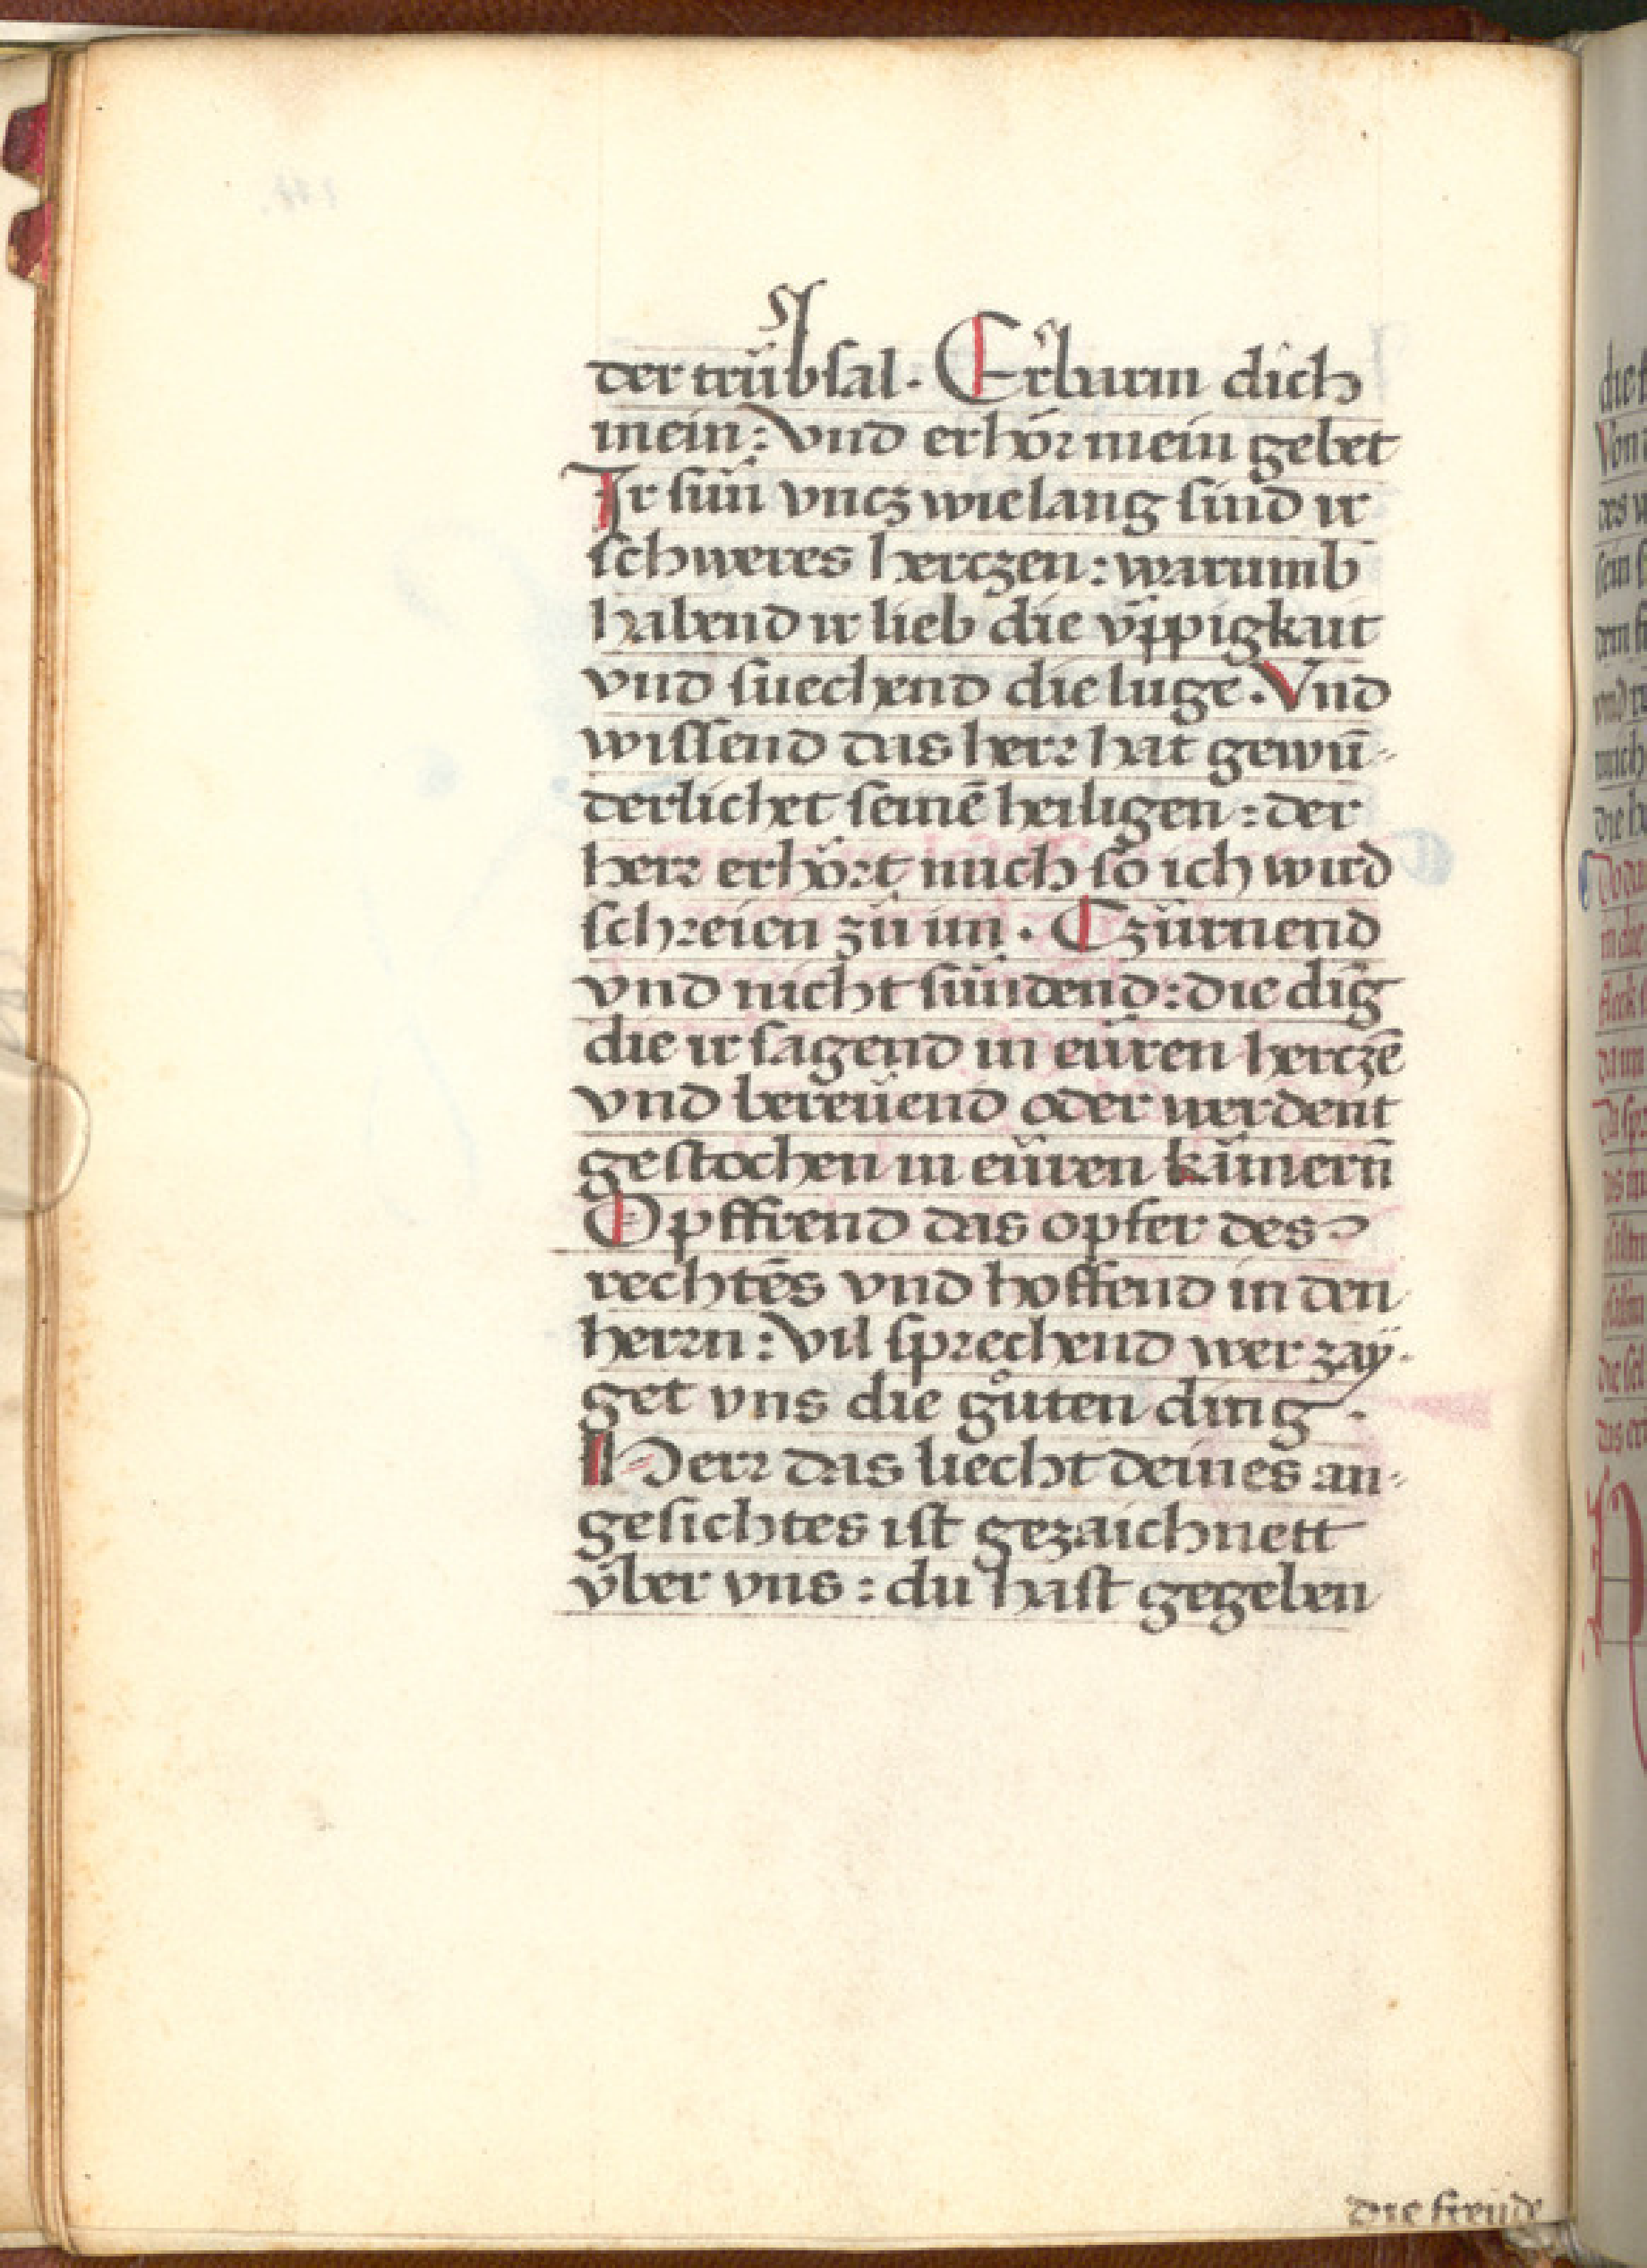 der trübsal. Erbarm dich
mein: vnd erhör mein gebet
Ir sün vncz wie lang sind ir
schweres herczen: warumb
habend ir lieb die vppigkait
vnd suechend die luge. Vnd
wissend das herr hat gewū-
derlichet seinē heiligen: der
herr erhört mich so ich wird
schreien zů im. Czürnend
vnd nicht sündend: die dīg
die ir sagend in eüren herczē
vnd bereüend oder werdent
gestochen in eüren kämern̄
Opffrend das opfer des
rechtēs vnd hoffend in den
herrn: Vil sprechend wer zaÿ-
get vns die gůten ding.
Herr das liecht deines an-
gesichtes ist gezaichnett
vber vns: du hast gegeben
die freüde